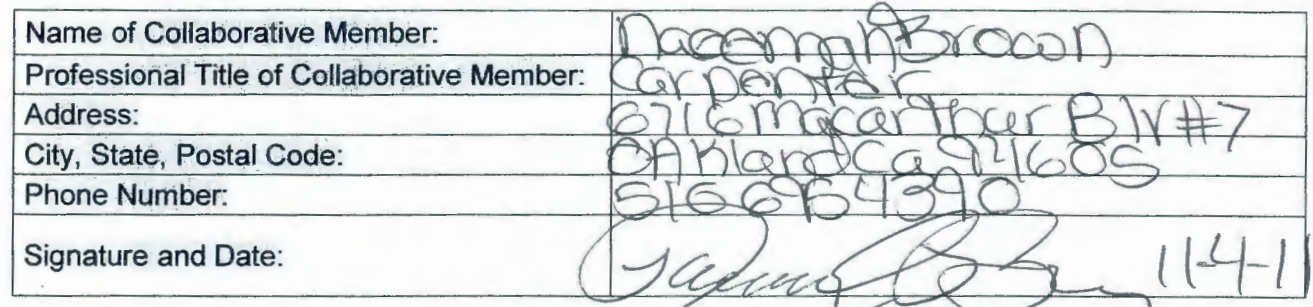 Name of Collaborative Member: Naeemah Brown
Professional Title of Collaborative Member: Carpenter
Address: 6716 Macarthur Blv #7
City, State, Postal Code: OAKland Ca 94605
Phone Number:
Signature and Date: 11-4-11